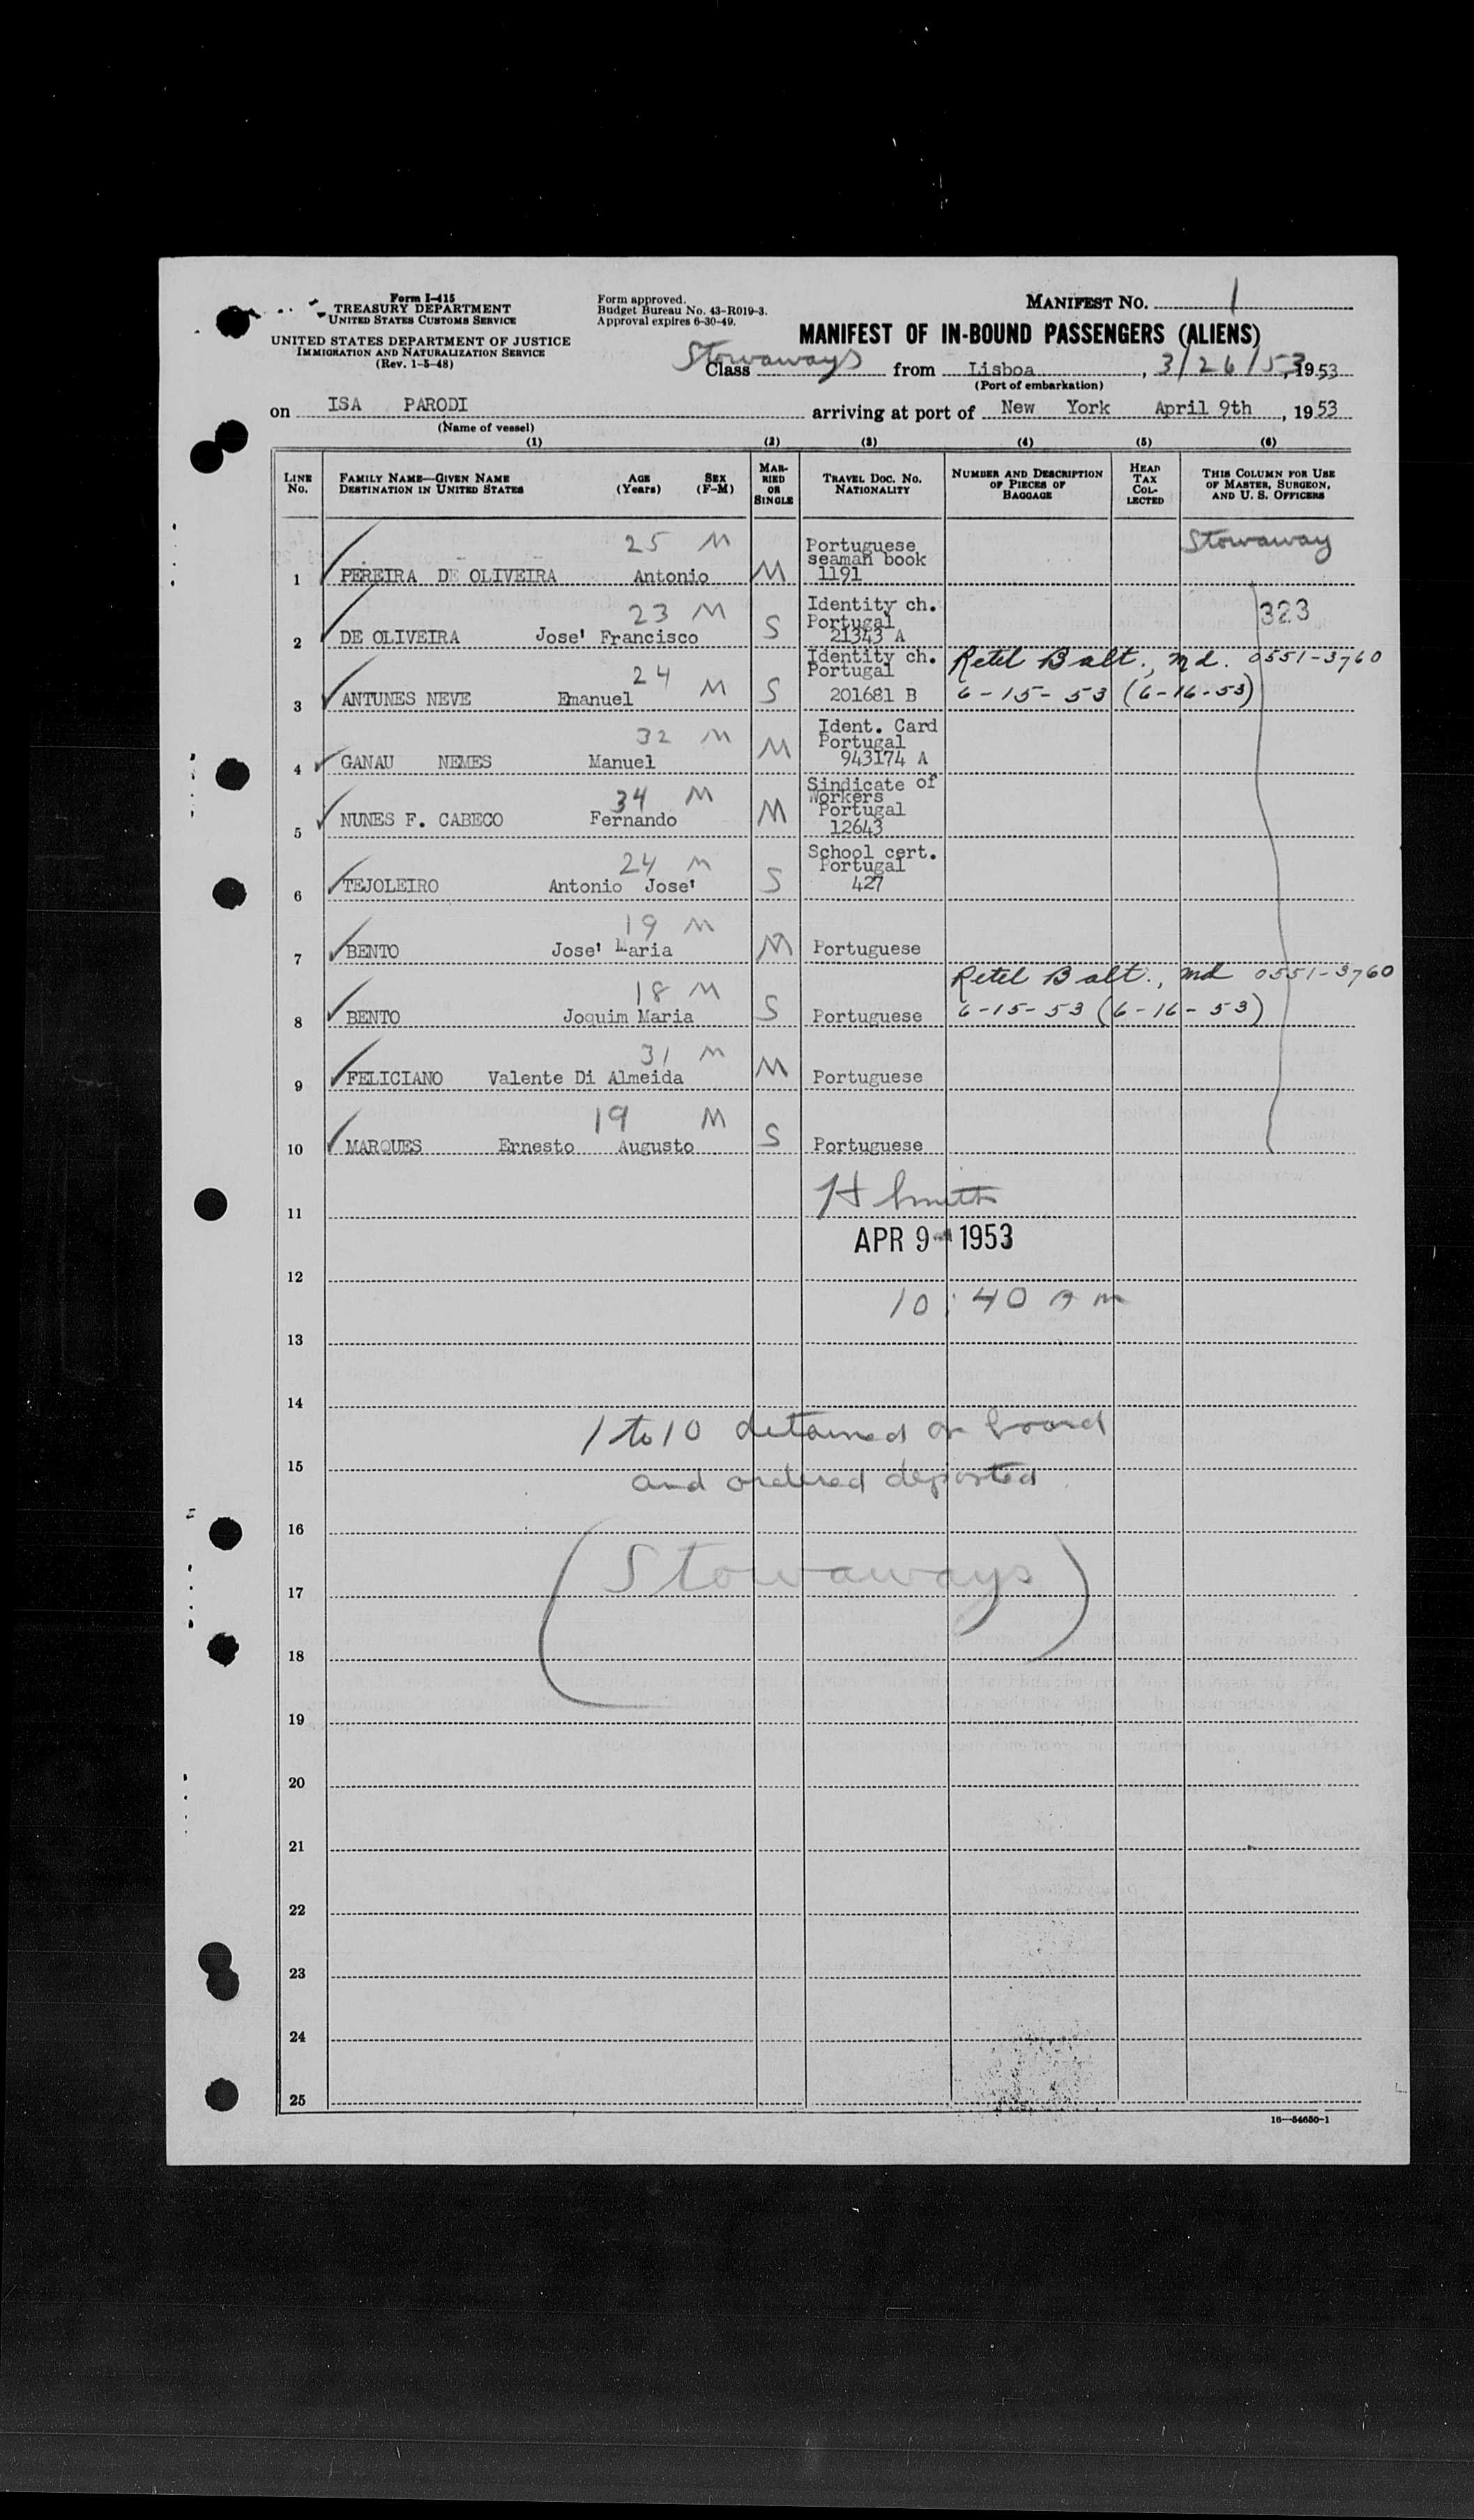 Form I-415
TREASURY DEPARTMENT
UNITED STATES CUSTOMS SERVICE
UNITED STATES DEPARTMENT OF JUSTICE
IMMIGRATION AND NATURALIZATION SERVICE
(Rev. 1-5-48)
Form approved.
Budget Bureau No. 43-R019-3.
Approval expires 6-30-49.
MANIFEST NO. 1
MANIFEST OF IN-BOUND PASSENGERS (ALIENS)
Class Stowaways from Lisboa, 3/26/53, 1953
(Port of embarkation)
on ISA PARODI arriving at port of New York April 9th, 1953
(Name of vessel)
(1) (2) (3) (4) (5) (6)
LINE No. FAMILY NAME—GIVEN NAME DESTINATION IN UNITED STATES AGE (Years) SEX (F-M) MARRIED OR SINGLE TRAVEL DOC. NO. NATIONALITY NUMBER AND DESCRIPTION OF PIECES OF BAGGAGE HEAD TAX COLLECTED THIS COLUMN FOR USE OF MASTER, SURGEON, AND U. S. OFFICERS
25 M Portuguese seaman book Stowaway
1 PEREIRA DE OLIVEIRA Antonio M 1191
23 M Identity ch. Portugal 323
2 DE OLIVEIRA Jose' Francisco S 21343 A
24 M Identity ch. Portugal Retel Balt., Md. 0551-3760
3 ANTUNES NEVE Emanuel S 201681 B 6-15-53 (6-16-53)
32 M Ident. Card Portugal
4 GANAU NEMES Manuel M 943174 A
34 M Sindicate of Workers Portugal
5 NUNES F. CABECO Fernando M 12643
24 M School cert. Portugal
6 TEJOLEIRO Antonio Jose' S 427
19 M
7 BENTO Jose' Maria M Portuguese
18 M Retel Balt., Md 0551-3760
8 BENTO Joquim Maria S Portuguese 6-15-53 (6-16-53)
31 M
9 FELICIANO Valente Di Almeida M Portuguese
19 M
10 MARQUES Ernesto Augusto S Portuguese
H Smith
11
APR 9 1953
12
10:40 AM
13
14
1 to 10 detained on board
15
and ordered deported
16
(Stowaways)
17
18
19
20
21
22
23
24
25
16—54650-1